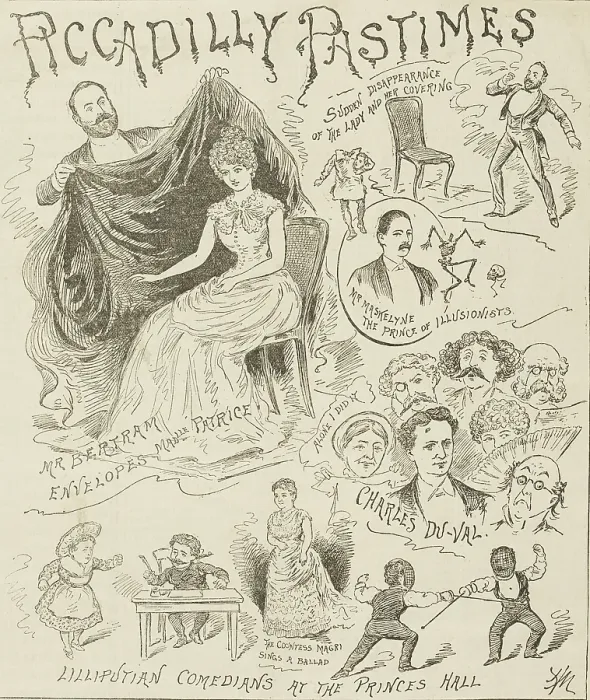 PICCADILLY PASTIMES
SUDDEN DISAPPEARANCE
OF THE LADY AND HER COVERING
MR MASKELYNE
THE PRINCE OF ILLUSIONISTS.
MR BERTRAM
ENVELOPES MADLLE PATRICE
ALONE I DID IT
CHARLES DU-VAL.
THE COUNTESS MAGRI
SINGS A BALLAD
LILLIPUTIAN COMEDIANS AT THE PRINCES HALL